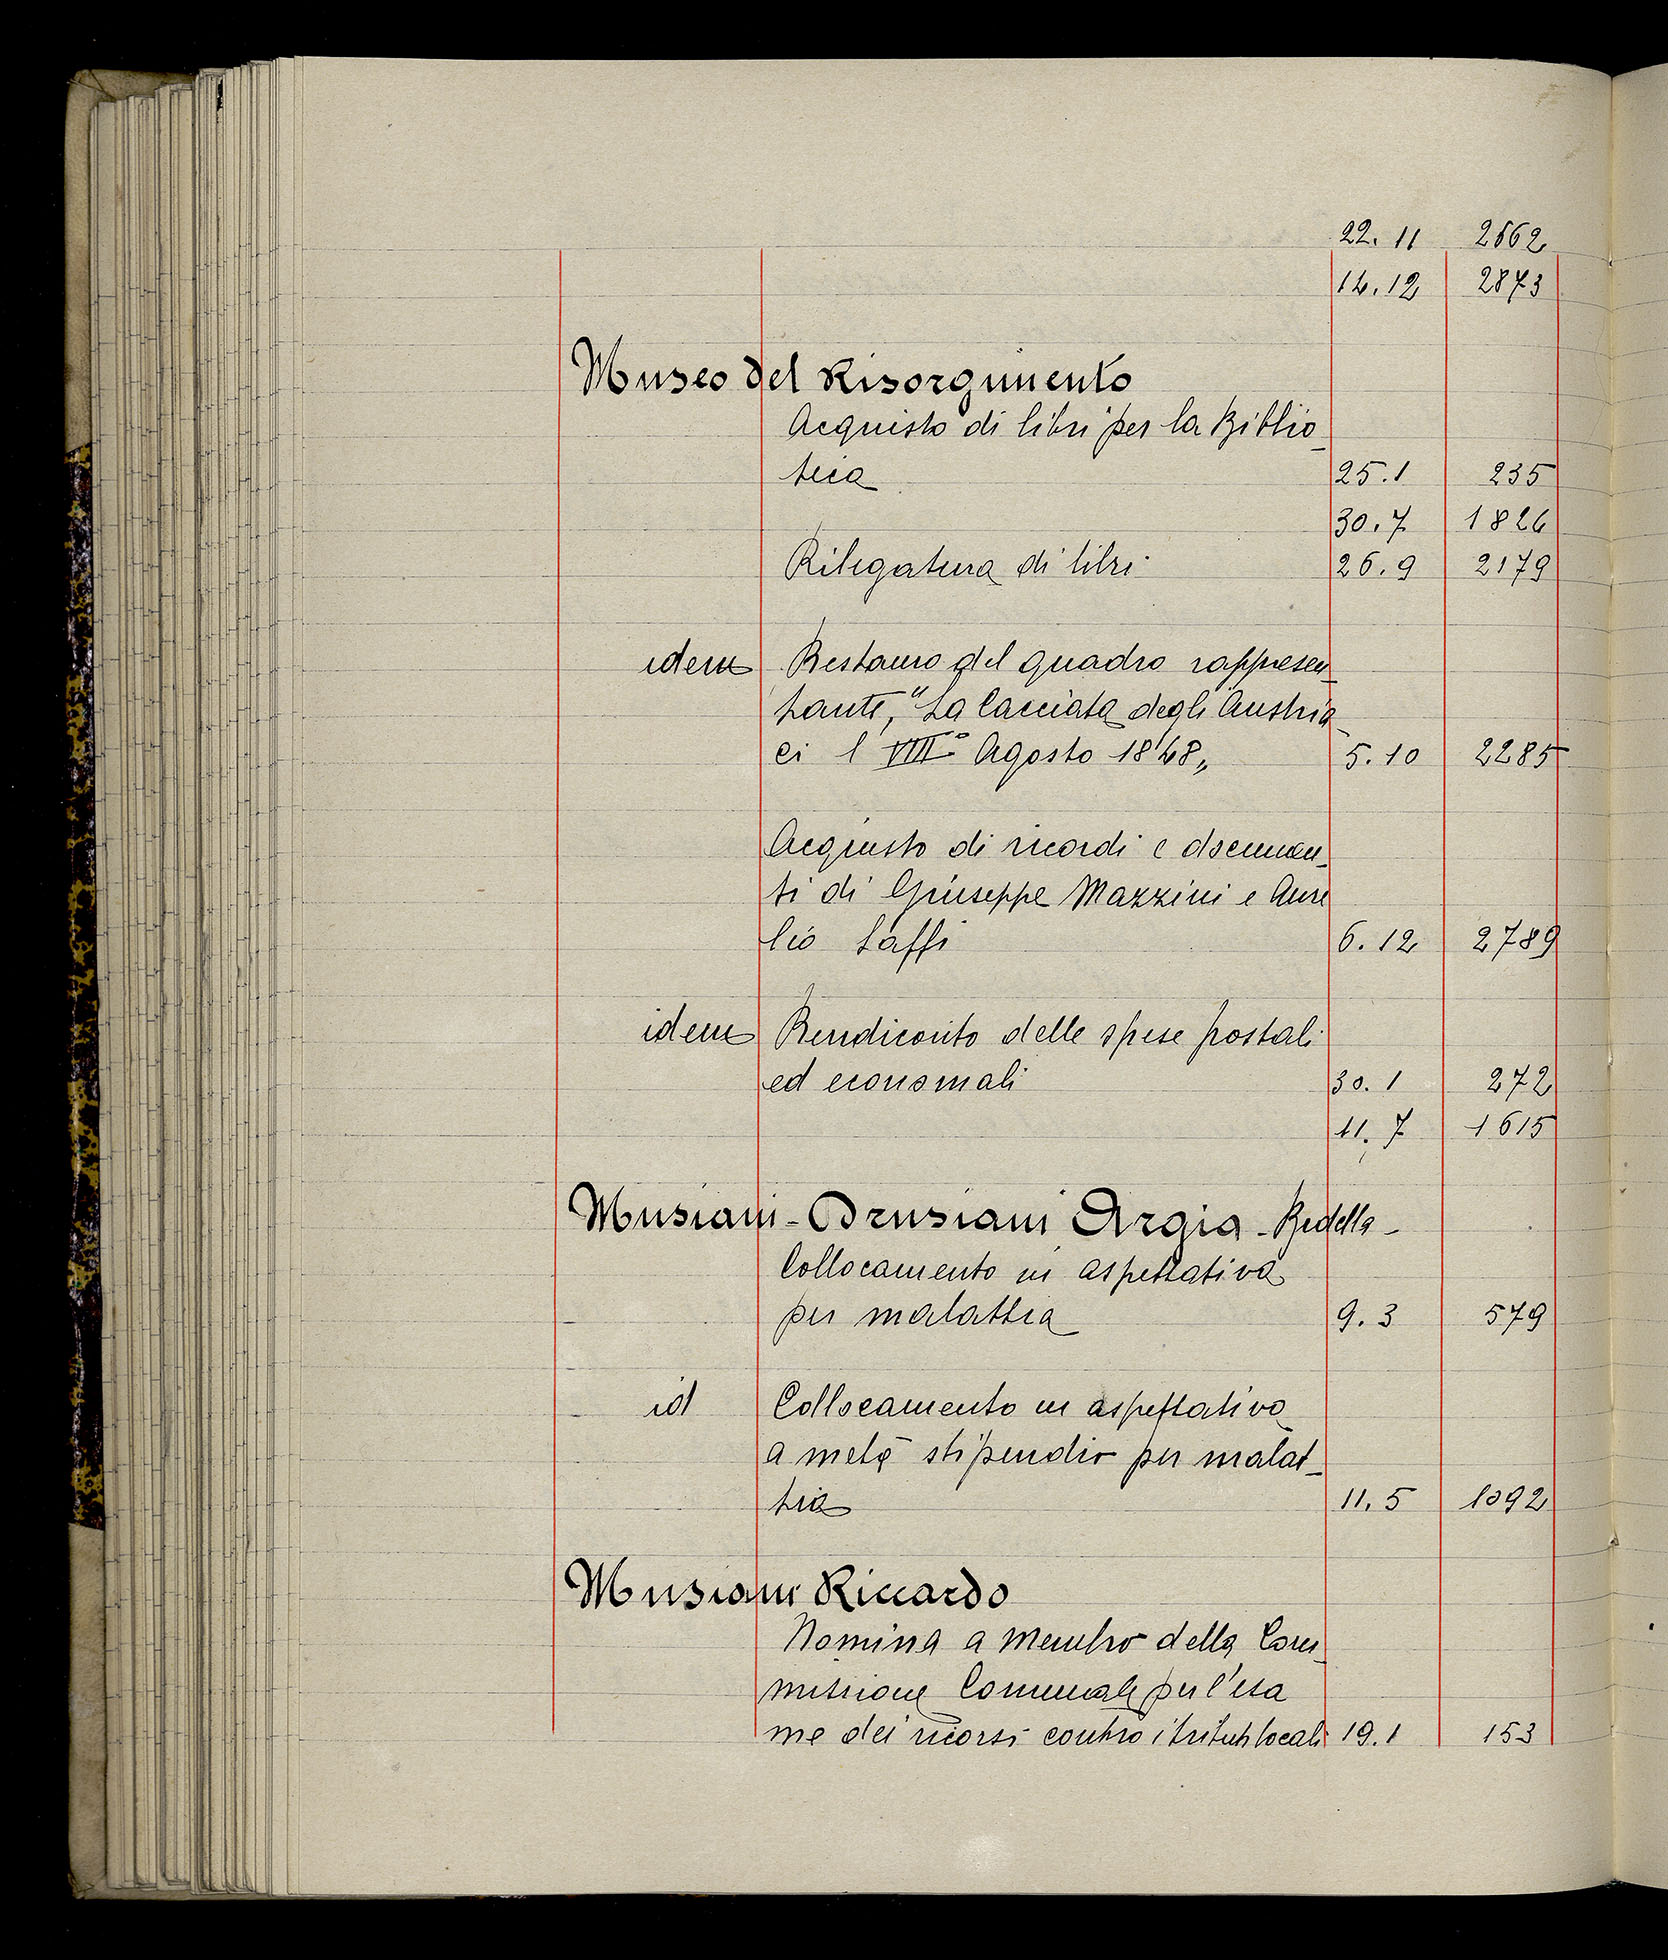 22. 11 2662
14. 12 2873
Museo del Risorgimento
Acquisto di libri per la Biblio_
teca 25. 1 235
30. 7 1824
Rilegatura di libri 26. 9 2179
idem Restauro del quadro rappresen_
tante, "La Cacciata degli Austria_
ci l'VIII° Agosto 1848„ 5. 10 2285
Acquisto di ricordi e documen_
ti di Giuseppe Mazzini e Aure
lio Saffi 6. 12 2789
idem Rendiconto delle spese postali
ed economali 30. 1 272
11. 7 1615
Musiani-Brusiani Argia - Bidella -
Collocamento in aspettativa
per malattia 9. 3 579
id Collocamento in aspettativa
a metà stipendio per malat_
tia 11. 5 1092
Musiani Riccardo
Nomina a membro della Com_
missione Comunale per l'esa
me dei ricorsi contro i tributi locali 19. 1 153